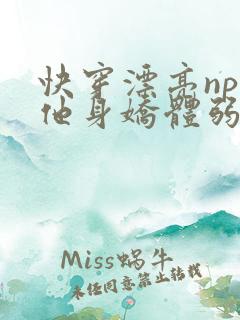 快穿漂亮np
他身嬌體弱
Miss蝸牛
未經同意禁止轉載